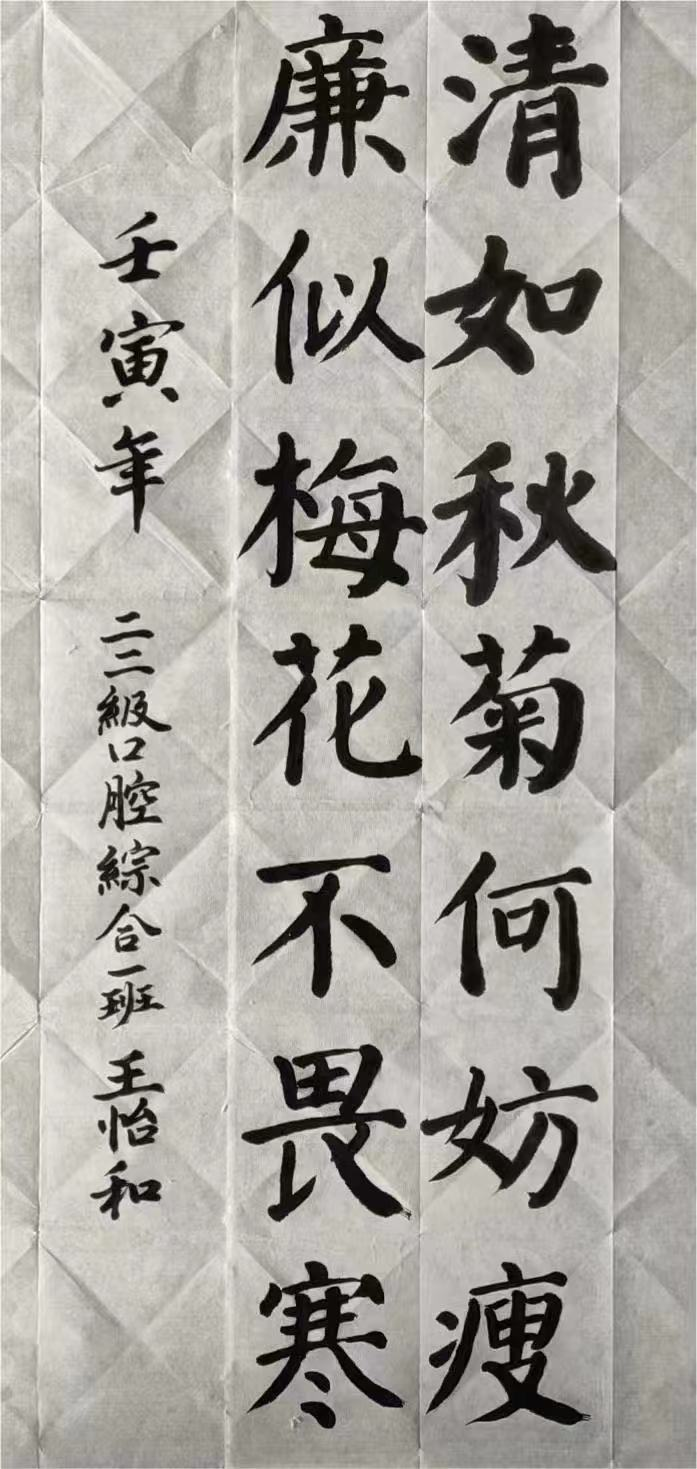 清如秋菊何妨瘦
廉似梅花不畏寒
壬寅年 二二級口腔綜合一班 王怡和